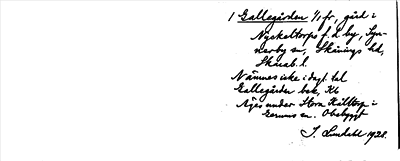 1 Gallegården 1/1 fr, gård i
Nyckeltorps f. d. by, Syn-
nerby sn, Skånings hd,
Skarab. l.
Nämnes icke i dagl. tal
Gallegården bek, Kb
Äges under Stora Kålltorp i
sn. Obebyggt
J. Lundahl 1928.